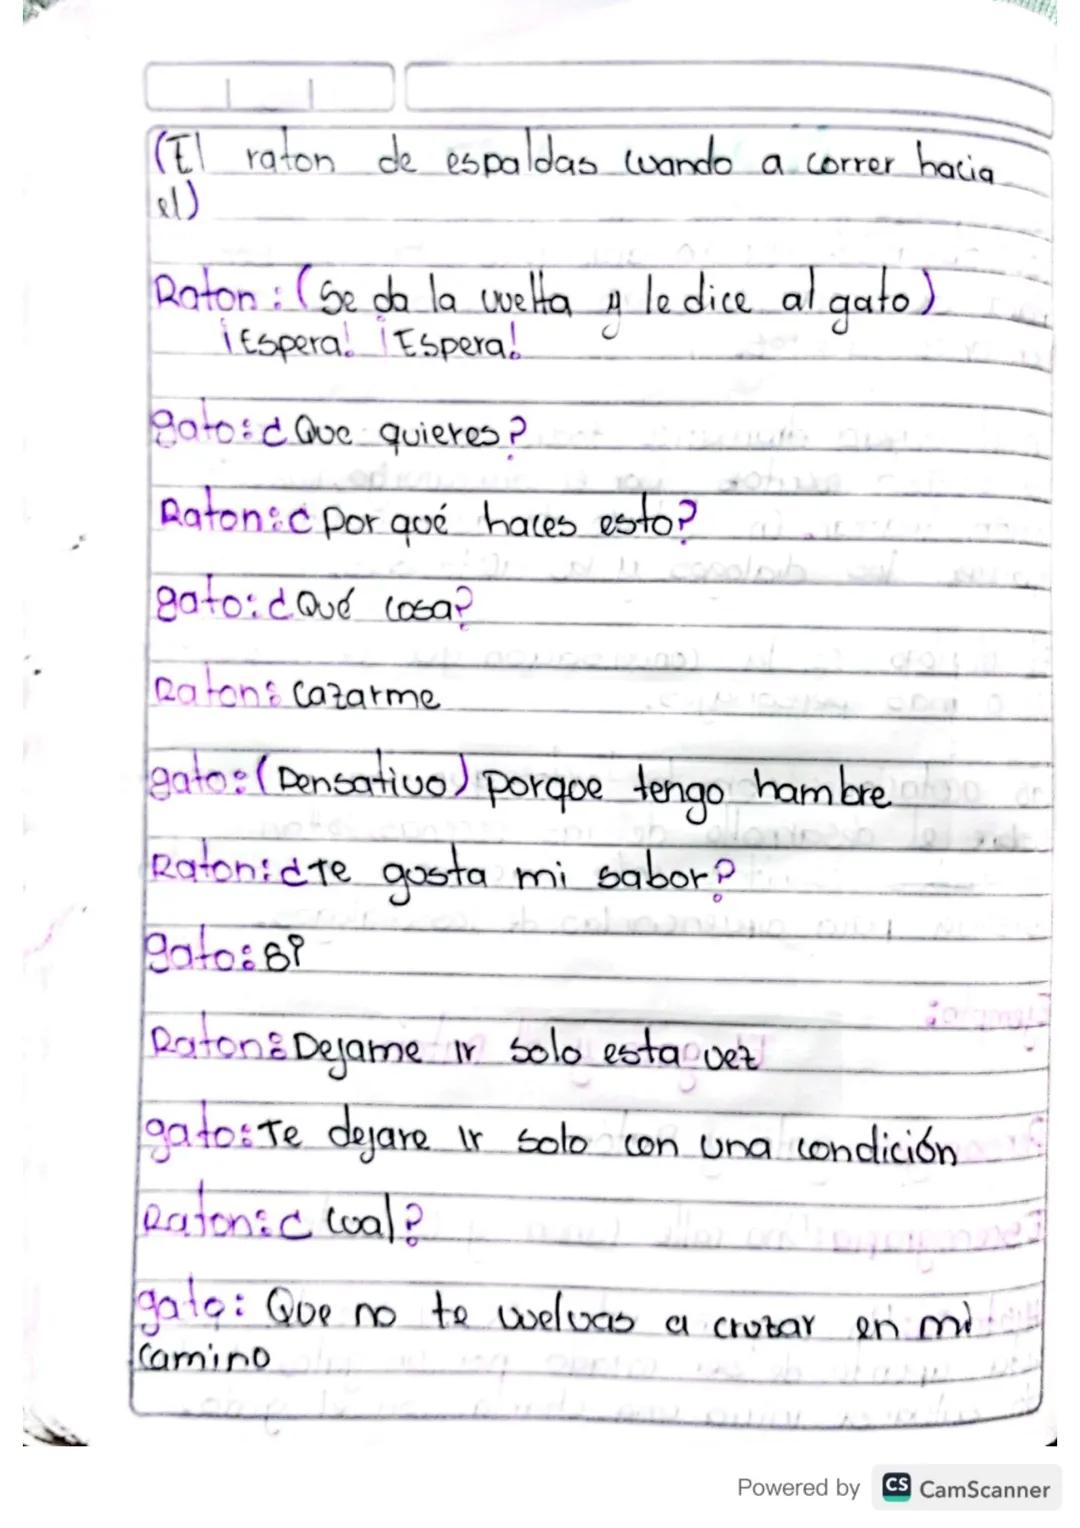 (El raton de espaldas cuando a correr hacia
el)
Raton: (Se da la vuelta y le dice al gato)
¡Espera! ¡Espera!
gato: ¿Que quieres?
Raton: ¿Por qué haces esto?
gato: ¿Qué cosa?
Raton: Cazarme
gato: (Pensativo) Porque tengo hambre
Raton: ¿Te gusta mi sabor?
gato: Si
Raton: Dejame ir solo esta vez
gato: Te dejare ir solo con una condición
Raton: ¿Cual?
gato: Que no te vuelvas a cruzar en mi
camino
Powered by CS CamScanner